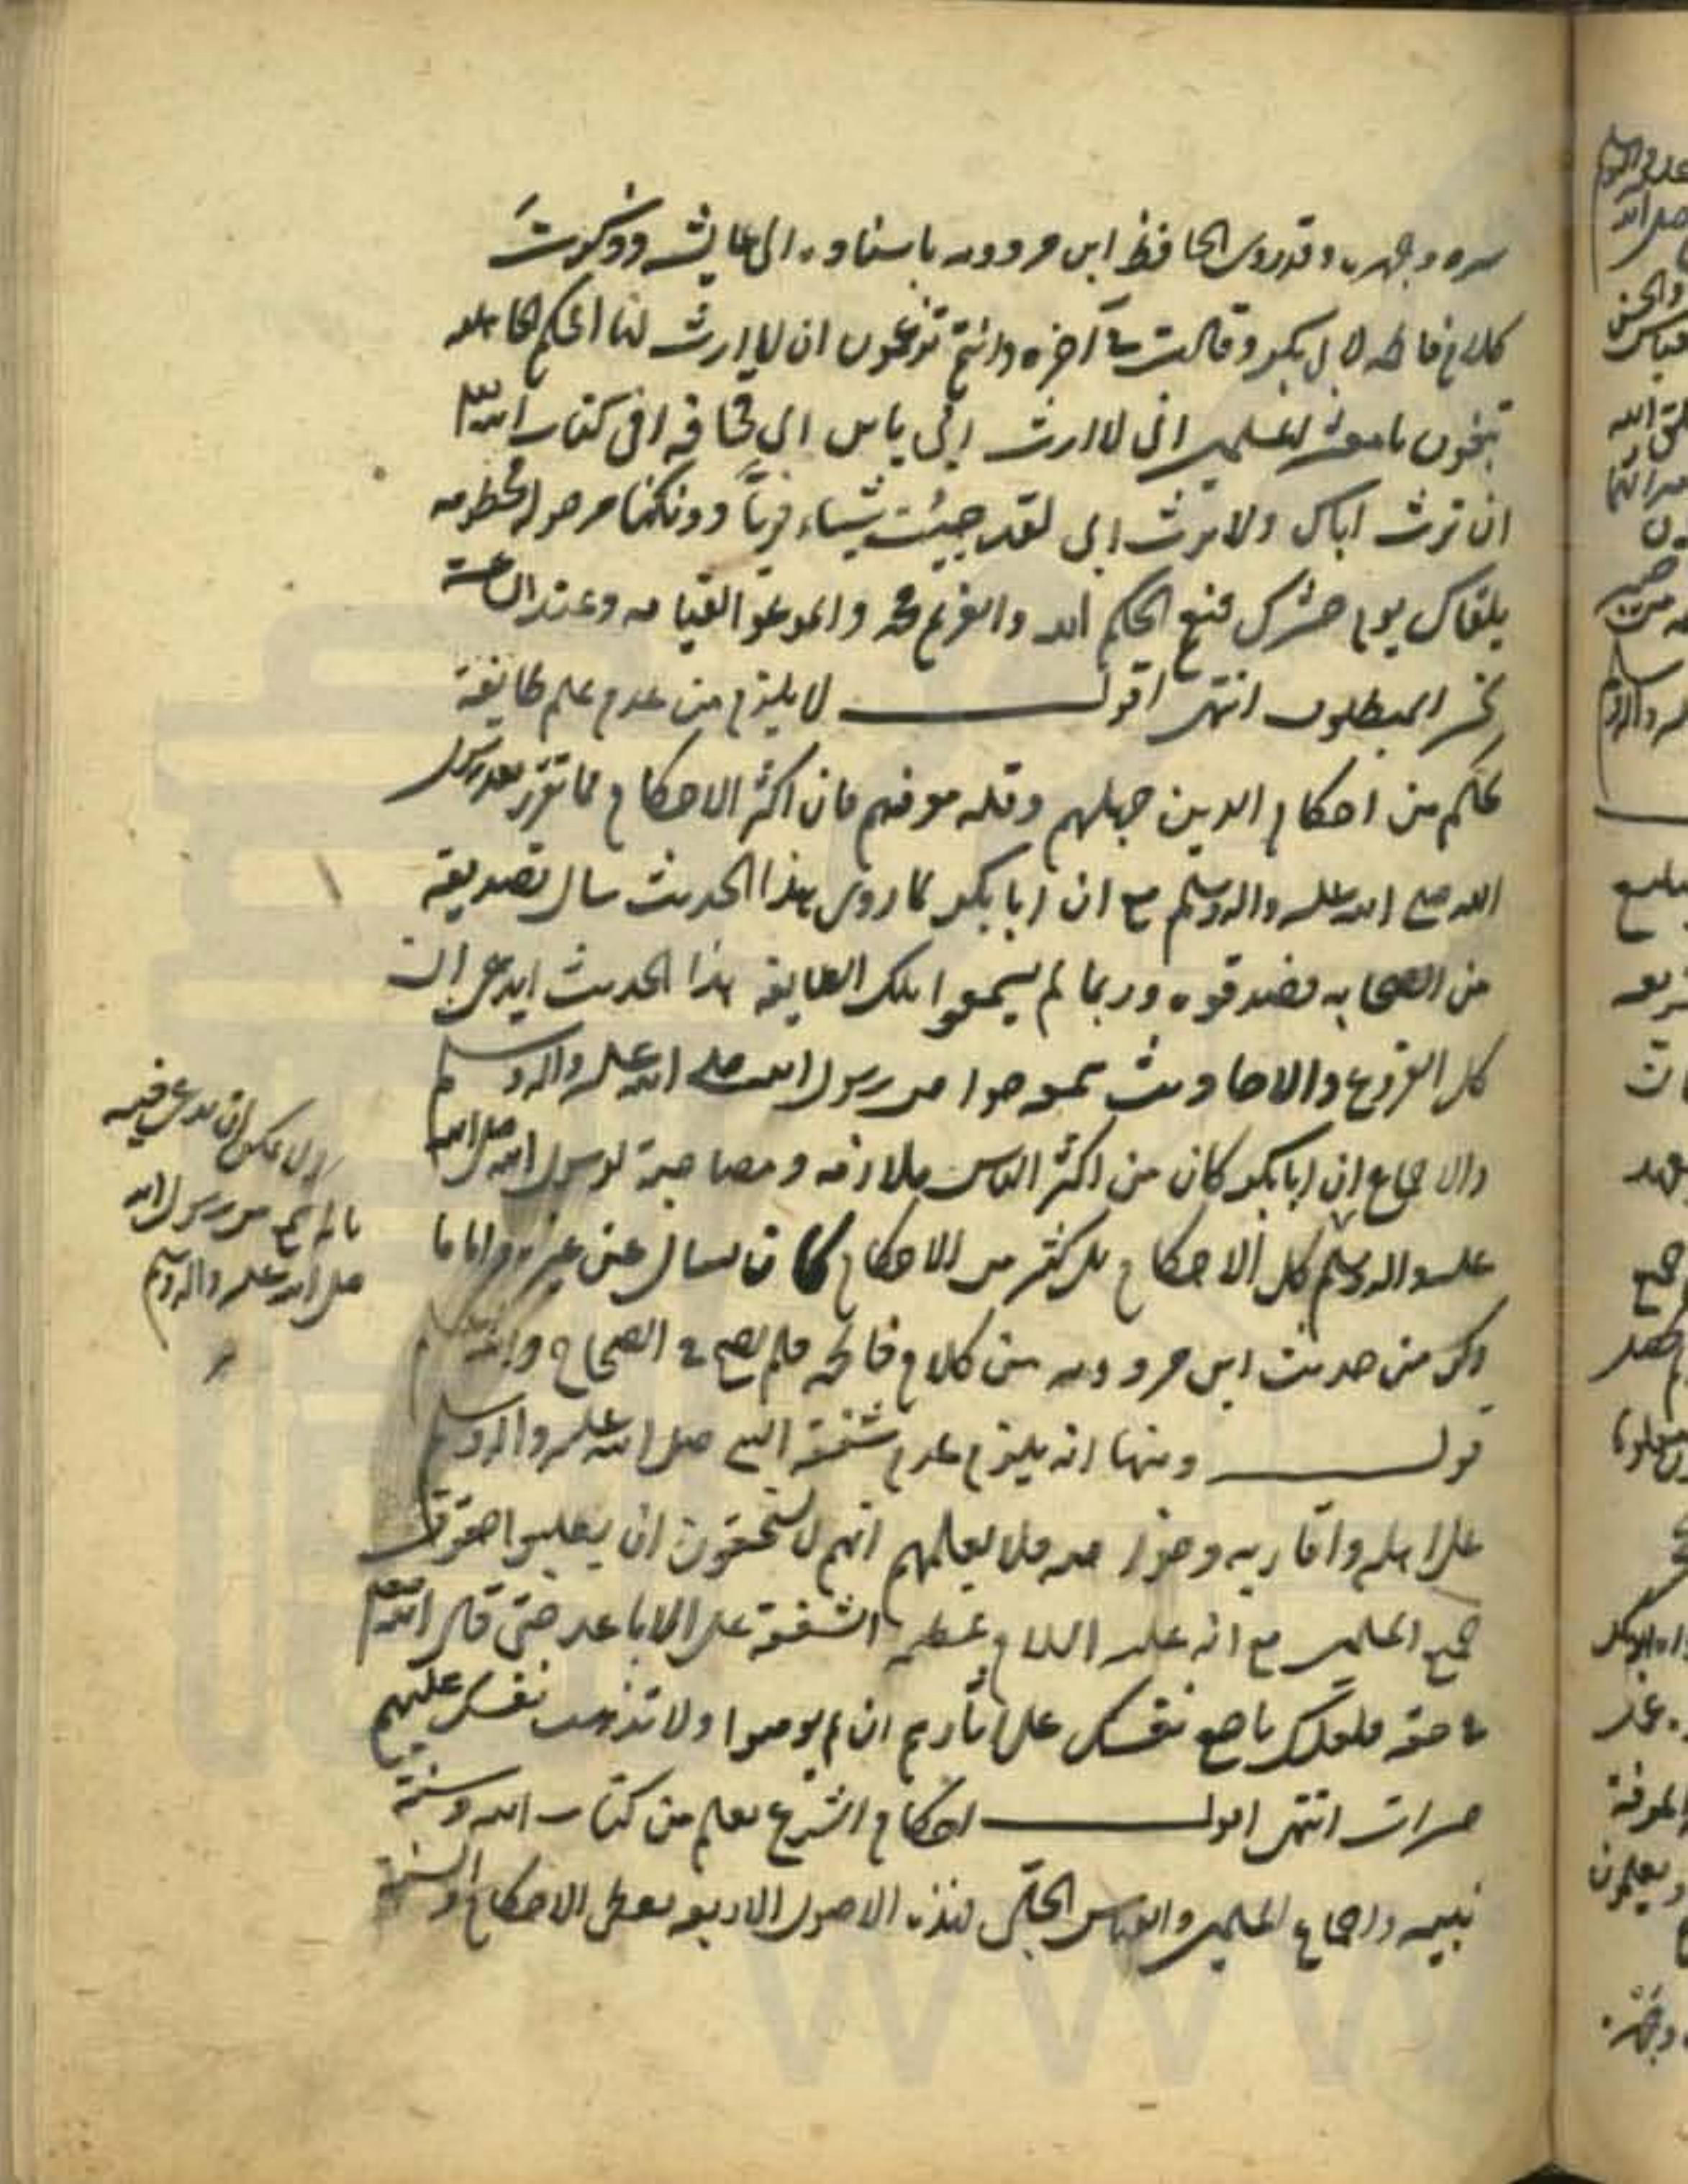 سره وجهره وقد روى الحافظ ابن مردويه باسناده الى عايشه وذكرت
كلام فاطمه لابي بكر وقالت في آخره وانتم تزعمون ان لا ارث لنا افحكم الجاهلية
تبغون يا معشر المسلمين اني لا ارث ابي يابن ابي قحافه افي كتاب الله
ان ترث اباك ولا ارث ابي لقد جيئت شيئاء فرياً فدونكها مرحوله مخطومه
يلقاك يوم حشرك فنعم الحكم الله والغريم محمد والموعد القيامه وعند الساعة
يخسر المبطلون انتهى اقول لا يلزم من عدم علم طايفة
بحكم من احكام الدين جهلهم وقله معرفتهم فان اكثر الاحكام مما تقرر بعد رسول
الله صلى الله عليه واله وسلم مع ان ابا بكر لما روى هذا الحديث سال تصديقه
من الصحابه فصدقوه وربما لم يسمعوا تلك الطايفه هذا الحديث ايدعى ان
كل الفروع والاحاديث سمعوها من رسول الله صلى الله عليه واله وسلم
والاجماع ان ابا بكر كان من اكثر الناس ملازمه ومصاحبة لرسول الله صلى الله
عليه واله وسلم كل الاحكام بل كثير من الاحكام كان يسال عن غيره واما ما
ذكر من حديث ابن مردويه من كلام فاطمه فلم يصح في الصحاح
قوله ومنها انه يلزم عدم شفقة النبي صلى الله عليه واله وسلم
على اهله واقاربه فلا يعلمهم انهم لا يستحقون ان
جميع المسلمين مع انه عليه السلام عظيم الشفقة على الاباعد حتى قال الله
في حقه فلعلك باخع نفسك على اثارهم ان لم يومنوا ولا تذهب نفسك عليهم
حسرات انتهى اقول احكام الشرع يعلم من كتاب الله وسنة
نبيه واجماع المسلمين والقياس الجلي لهذه الاصول الاربعه الاحكام
يمكن ان يدعى فيه
ما لم يسمع من رسول الله
صلى الله عليه واله وسلم